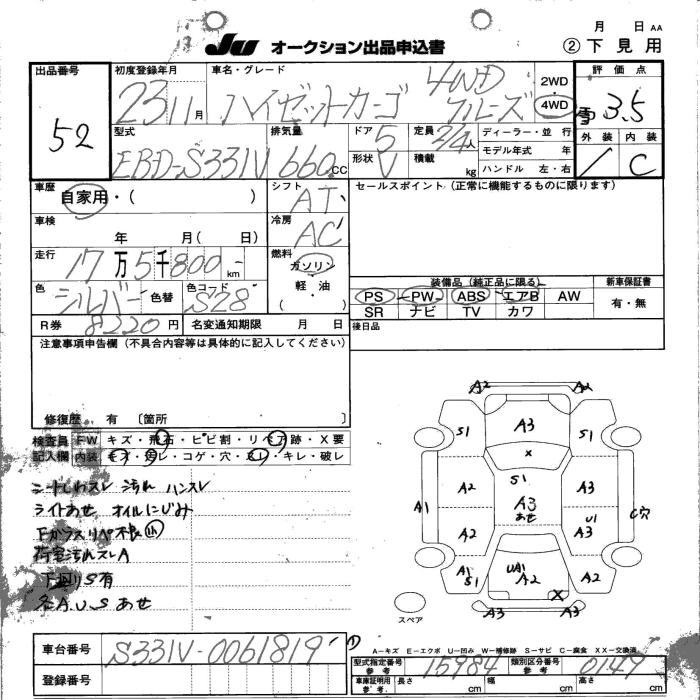 JU オークション出品申込書
月 日 AA
② 下見用
出品番号
52
初度登録年月
23 11月
車名・グレード
ハイゼットカーゴ
4WD
クルーズ
2WD
4WD
評価点
雪 3.5
外装 内装
/ C
型式
EBD-S331V
排気量
660 cc
ドア
5
形状
V
定員
2/4人
積載
kg
ディーラー・並行
モデル年式 年
ハンドル 左・右
車歴
自家用・( )
シフト
AT
セールスポイント(正常に機能するものに限ります)
車検
年 月( 日)
冷房
AC
走行
17万5千800 km
燃料
ガソリン
・
軽・油
( )
色
シルバー
色替
色コード
S28
装備品(純正品に限る)
PS PW ABS エアB AW
SR ナビ TV カワ
新車保証書
有・無
R券 8220円
名変通知期限 月 日
後日品
注意事項申告欄(不具合内容等は具体的に記入してください)
修復歴 有 〔箇所 〕
検査員 FW キズ・飛石・ヒビ割・リペア跡・X要
記入欄 内装 キズ・汚レ・コゲ・穴・スレ・キレ・破レ
シートしわスレ 汚れ ハンスレ
ライトあせ オイルにじみ
Fガラスリペ不良
荷室汚れスレA
下廻りS有
各A.U.S あせ
A2 A2
S1 A3 S1
X
S1
A1 A2 A3 あせ A3 C穴
A2 U1 A3
A1 S1 UA1 A2 A2
X
A3 A3
スペア
車台番号 S331V-0061819
登録番号
A-キズ E-エクボ U-凹み W-補修跡 S-サビ C-腐食 XX-交換済
型式指定番号 参考 15984 類別区分番号 参考 0149
車庫証明用 参考. 長さ cm 幅 cm 高さ cm